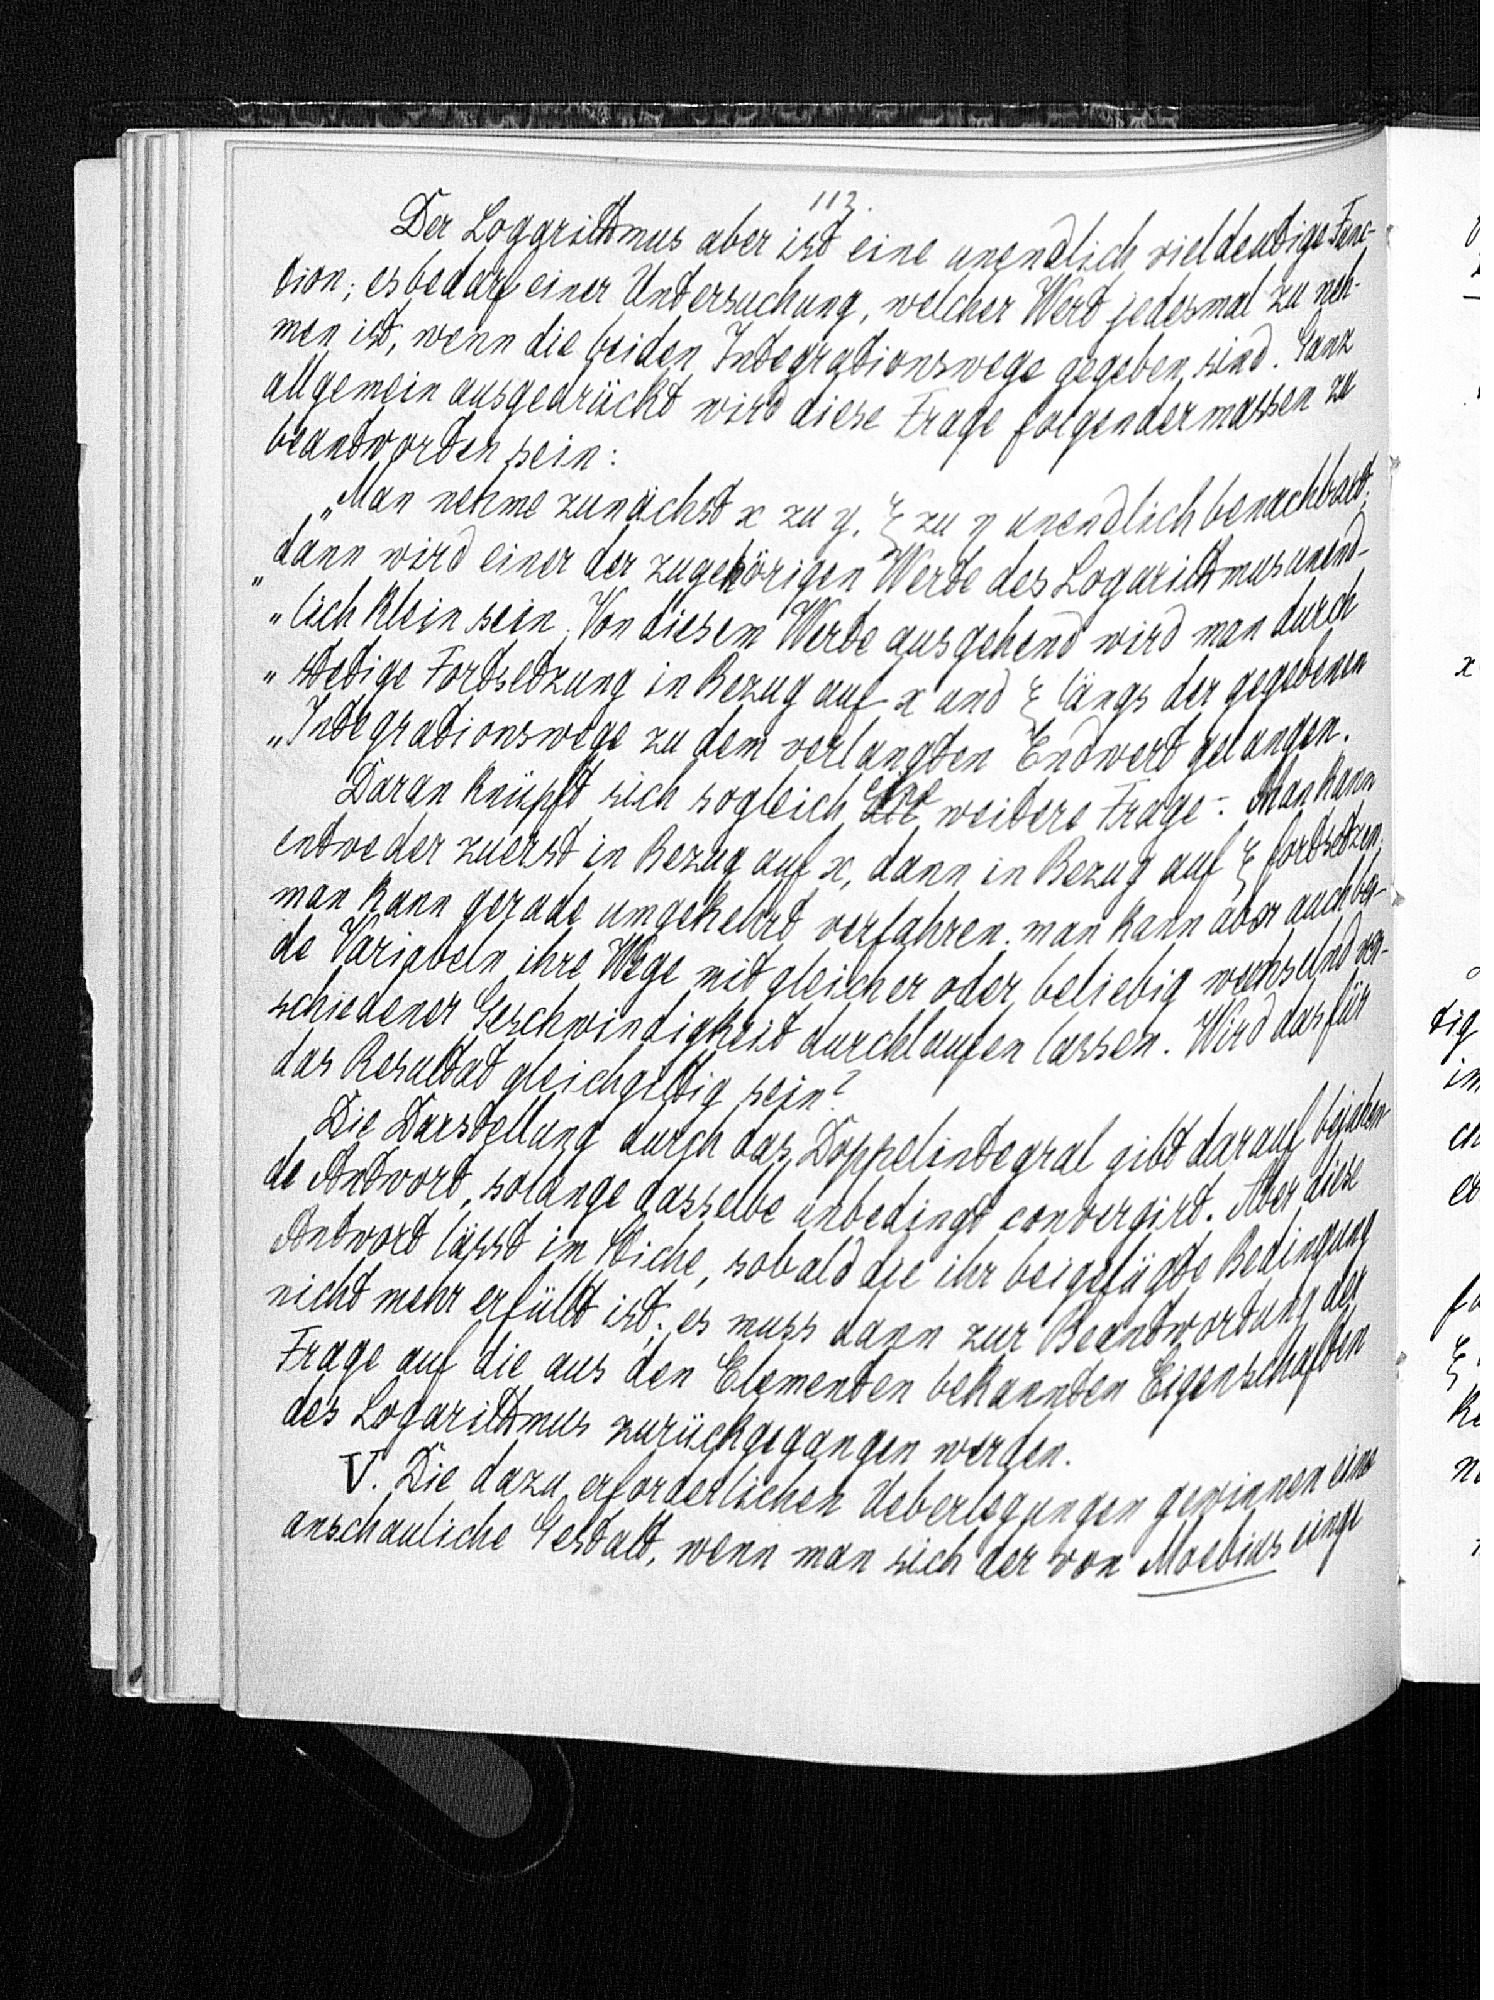 113.
Der Loggrithmus aber ist eine unendlich vieldeutige Func-
tion; es bedarf einer Untersuchung, welcher Wert jedesmal zu neh-
men ist, wenn die beiden Integrationswege gegeben sind. Ganz
allgemein ausgedrückt wird diese Frage folgendermassen zu
beantworten sein:
„Man nehme zunächst x zu y, ξ zu η unendlich benachbart;
„dann wird einer der zugehörigen Werte des Logarithmus unend-
„lich klein sein. Von diesem Werte ausgehend wird man durch
„stetige Fortsetzung in Bezug auf x und ξ längs der gegebenen
„Integrationswege zu dem verlangten Endwert gelangen.
Daran knüpft sich sogleich eine weitere Frage: Man kann
entweder zuerst in Bezug auf x, dann in Bezug auf ξ fortsetzen,
man kann gerade umgekehrt verfahren. man kann aber auch bei-
de Variabeln ihre Wege mit gleicher oder beliebig wechselnd ver-
schiedener Geschwindigkeit durchlaufen lassen. Wird das für
das Resultat gleichgiltig sein?
Die Darstellung durch das Doppelintegral gibt darauf bejahen-
de Antwort, solange dasselbe unbedingt convergirt. Aber diese
Antwort lässt im Stiche, sobald die ihr beigefügte Bedingung
nicht mehr erfüllt ist; es muss dann zur Beantwortung der
Frage auf die aus den Elementen bekannten Eigenschaften
des Logarithmus zurückgegangen werden.
V. Die dazu erforderlichen Ueberlegungen gewinnen eine
anschauliche Gestalt, wenn man sich der von Moebius einge
x
tig
im
ξ